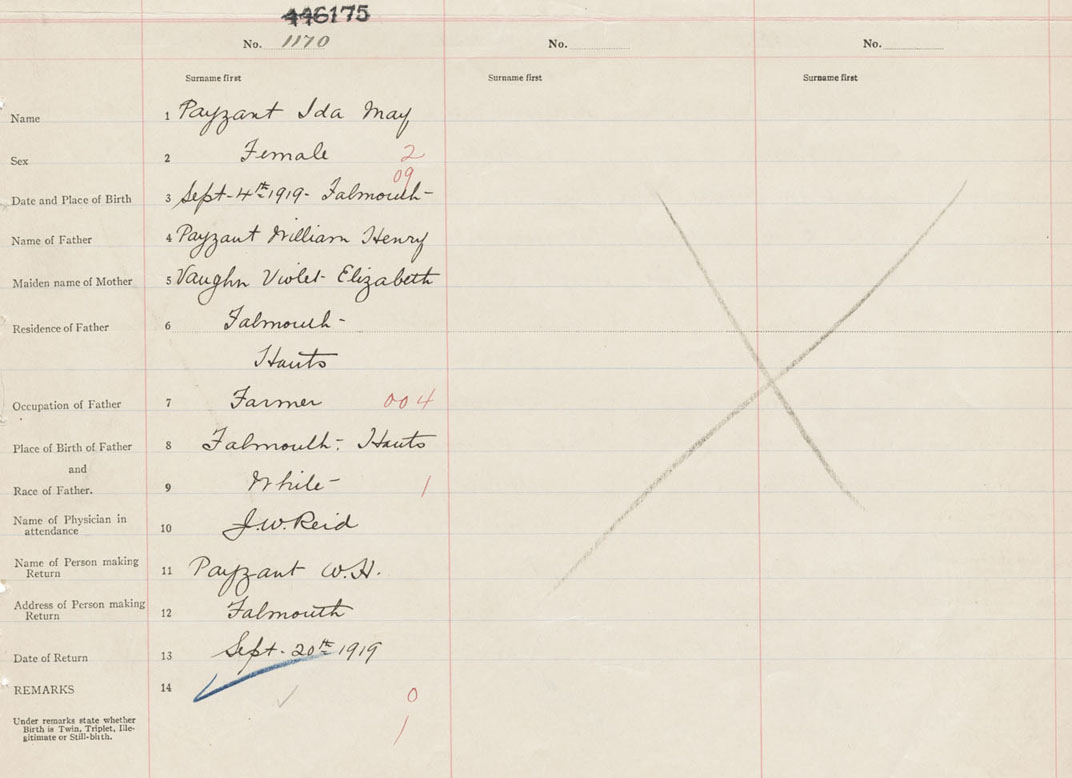 446175
No. 1170 No. No.
Surname first Surname first Surname first
Name 1 Payzant Ida May
Sex 2 Female 2
09
Date and Place of Birth 3 Sept-4th 1919- Falmouth-
Name of Father 4 Payzant William Henry
Maiden name of Mother 5 Vaughn Violet Elizabeth
Residence of Father 6 Falmouth-
Hants
Occupation of Father 7 Farmer 004
Place of Birth of Father 8 Falmouth- Hants
and
Race of Father. 9 White- 1
Name of Physician in
attendance 10 J.W. Reid
Name of Person making
Return 11 Payzant W.H.
Address of Person making
Return 12 Falmouth
Date of Return 13 Sept. 20th 1919
REMARKS 14 0
Under remarks state whether
Birth is Twin, Triplet, Ille-
gitimate or Still-bIth. 1